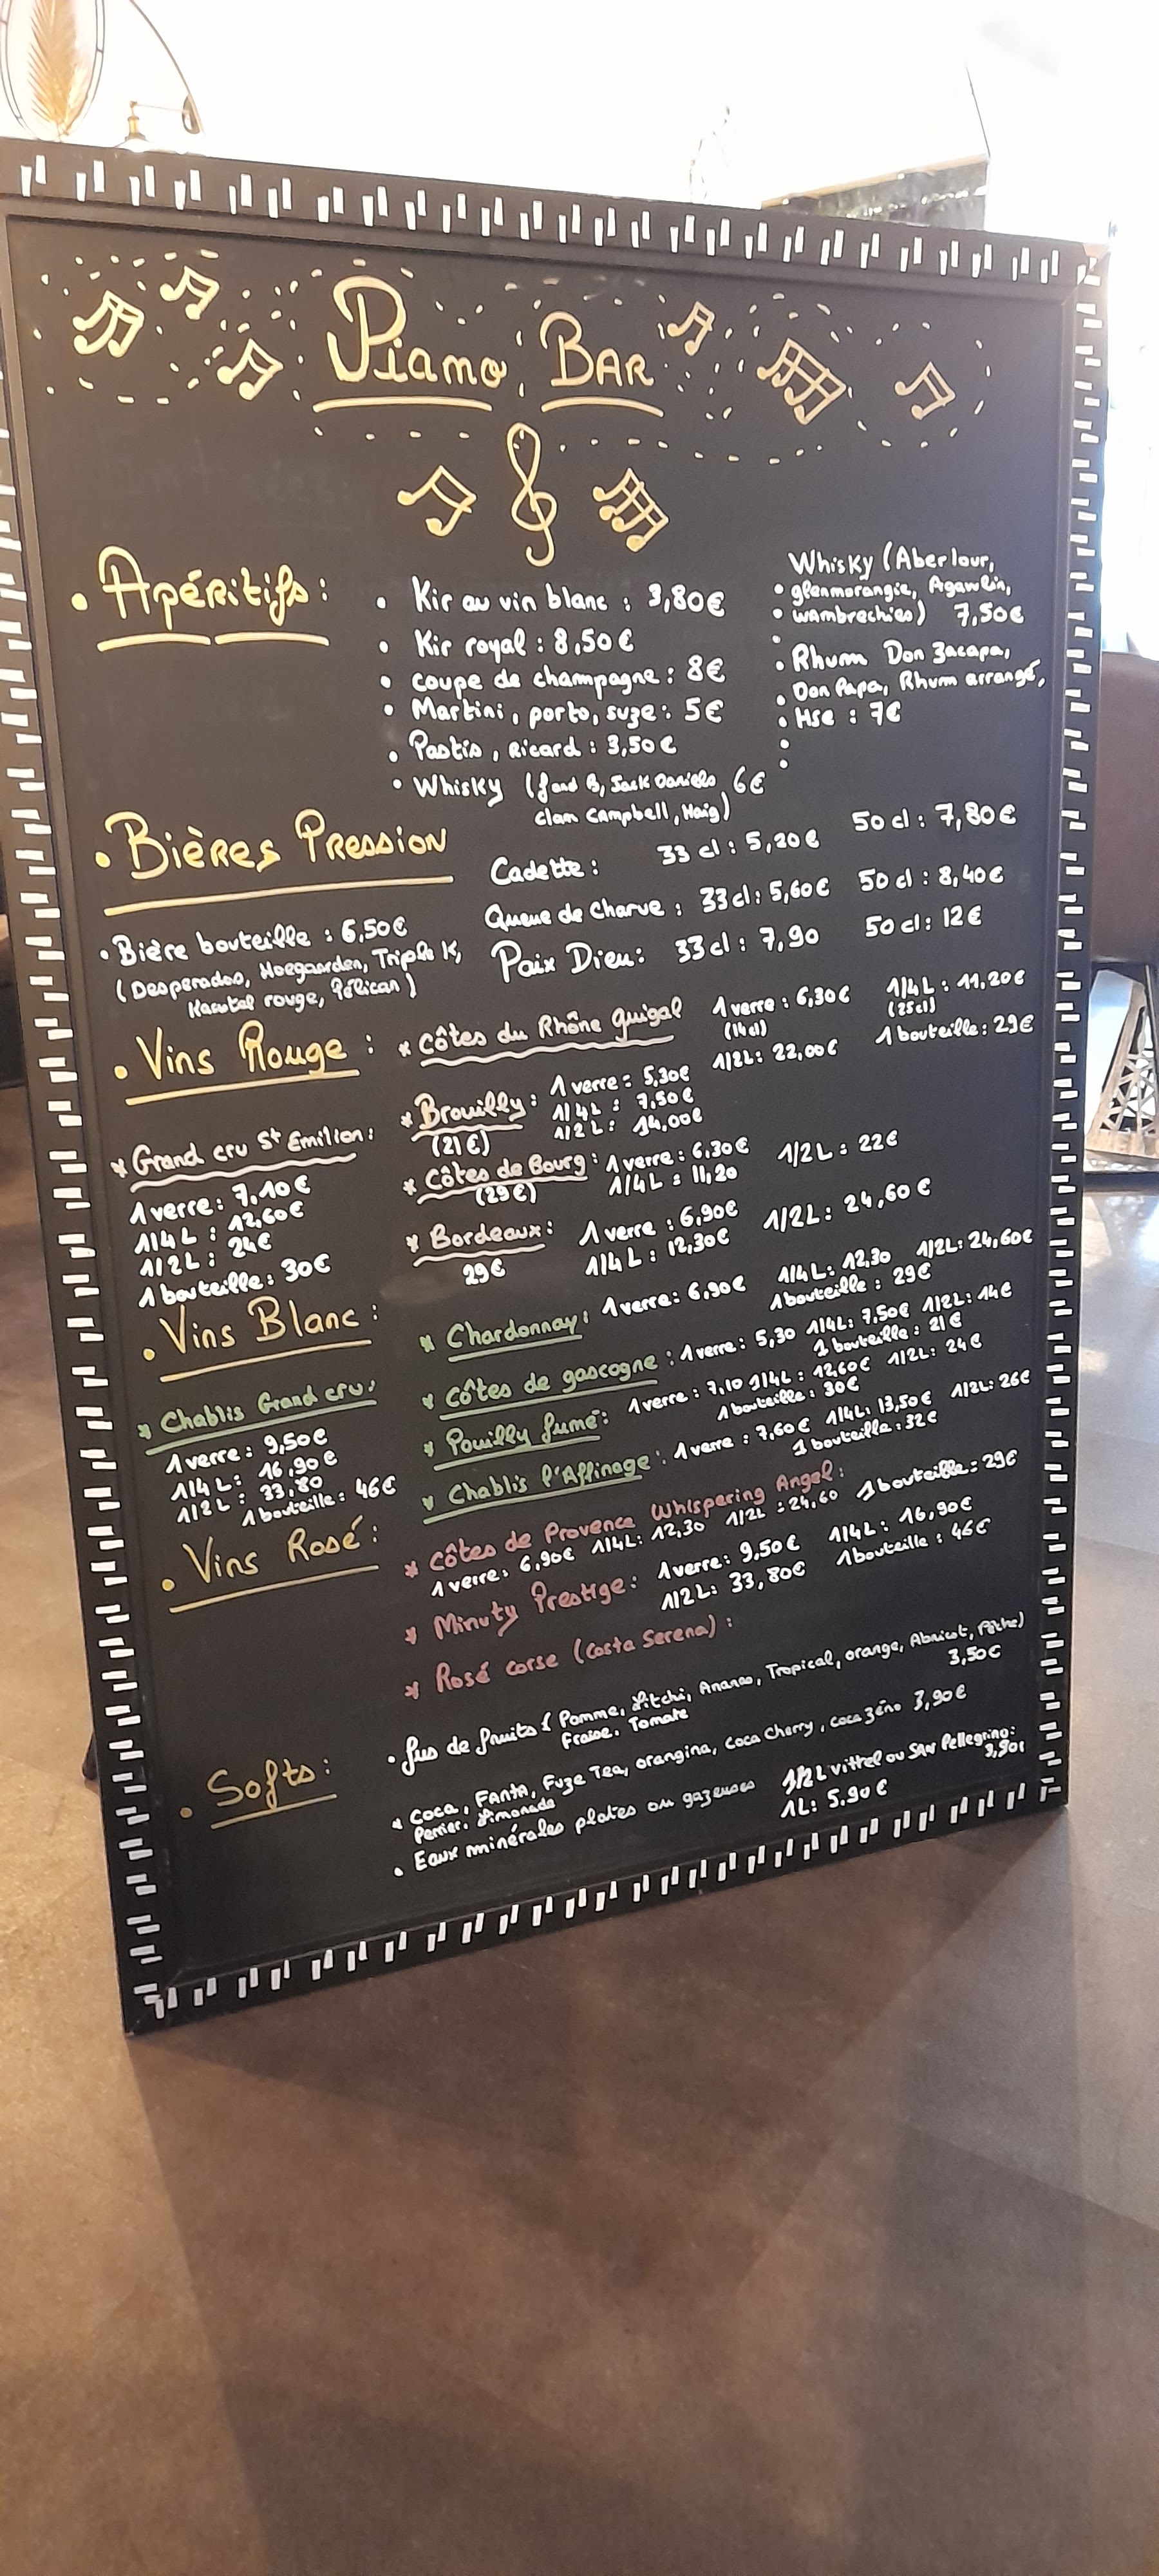 Piano Bar
• Apéritifs :
• Kir au vin blanc : 3,80€
• Kir royal : 8,50€
• coupe de champagne : 8€
• Martini, porto, suze : 5€
• Pastis, Ricard : 3,50€
• Whisky ( B, Jack Daniels 6€
clan Campbell, Haig)
Whisky (Aberlour,
• glenmorangie,
• wambrechies) 7,50€
• Rhum Don Zacapa,
• Don Papa, Rhum arrangé,
• Hse : 7€
• Bières Pression
Cadette : 33 cl : 5,20€ 50 cl : 7,80€
Queue de Charue : 33cl : 5,60€ 50 cl : 8,40€
Paix Dieu : 33cl : 7,90 50 cl : 12€
• Bière bouteille : 6,50€
(Desperados, Hoegaarden, Triple K,
Kasteel rouge, Pélican)
• Vins Rouge :
* Côtes du Rhône guigal 1 verre : 6,30€ 1/4L : 11,20€
(14cl) (25cl)
1/2L : 22,00€ 1 bouteille : 29€
* Brouilly : 1 verre : 5,30€
(21€) 1/4L : 7,50€
1/2L : 14,00€
* Côtes de Bourg : 1 verre : 6,30€ 1/2L : 22€
(29€) 1/4L : 11,20
* Bordeaux : 1 verre : 6,90€ 1/2L : 24,60€
29€ 1/4L : 12,30€
* Grand cru St Emilion :
1 verre : 7,10€
1/4L : 12,60€
1/2L : 24€
1 bouteille : 30€
• Vins Blanc :
* Chardonnay : 1 verre : 6,90€ 1/4L : 12,30 1/2L : 24,60€
1 bouteille : 29€
* Côtes de gascogne : 1 verre : 5,30 1/4L : 7,50€ 1/2L : 14€
1 bouteille : 21€
* Pouilly fumé : 1 verre : 7,10 1/4L : 12,60€ 1/2L : 24€
1 bouteille : 30€
* Chablis l'Affinage : 1 verre : 7,60€ 1/4L : 13,50€ 1/2L : 26€
1 bouteille : 32€
* Chablis Grand cru :
1 verre : 9,50€
1/4L : 16,90€
1/2L : 33,80
1 bouteille : 46€
• Vins Rosé :
* Côtes de Provence Whispering Angel :
1 verre : 6,90€ 1/4L : 12,30 1/2L : 24,60 1 bouteille : 29€
* Minuty Prestige : 1 verre : 9,50€ 1/4L : 16,90€
1/2L : 33,80€ 1 bouteille : 46€
* Rosé corse (Costa Serena) :
• Softs :
• Jus de fruits ( Pomme, Litchi, Ananas, Tropical, orange, Abricot, Pêche)
Fraise, Tomate 3,50€
* Coca, FANTA, Fuze Tea, orangina, Coca Cherry, coca zéro 3,90€
Perrier, Limonade
• Eaux minérales plates ou gazeuses 1/2L Vittel ou SAN Pellegrino :
3,90€
1L : 5.90€